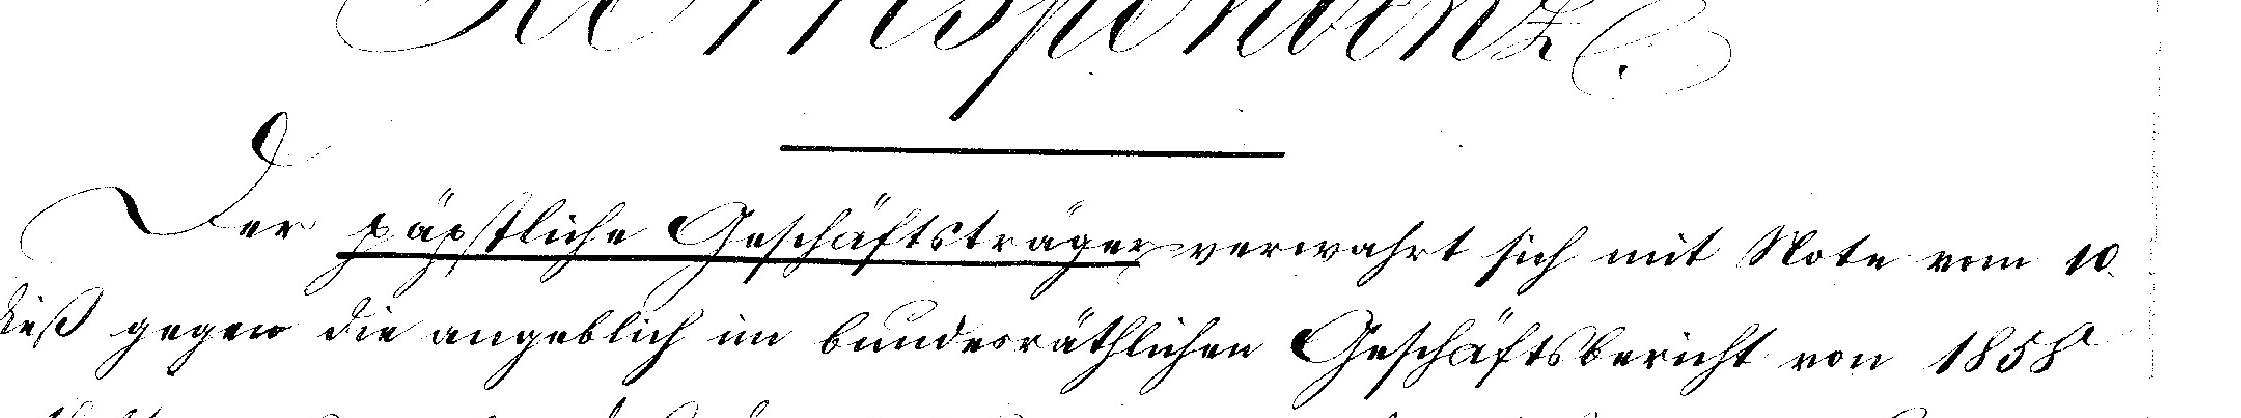 Korrespondenz.
Der päpstliche Geschäftsträger verwahrt sich mit Note vom 10.
dieß gegen die angeblich im bundesräthlichen Geschäftsbericht von 1858